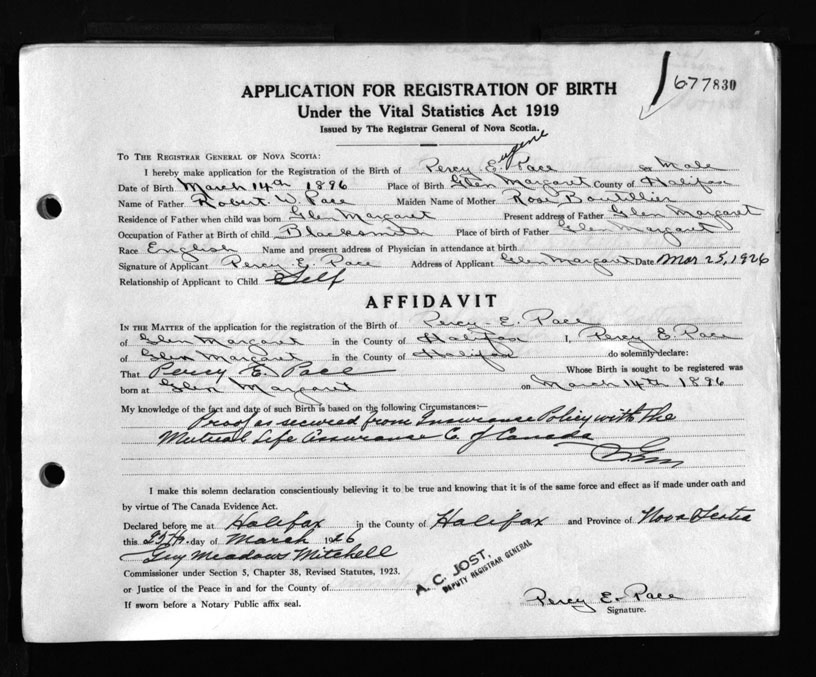 677830
APPLICATION FOR REGISTRATION OF BIRTH
Under the Vital Statistics Act 1919
Issued by The Registrar General of Nova Scotia.
Eugene
TO THE REGISTRAR GENERAL OF NOVA SCOTIA:
I hereby make application for the Registration of the Birth of Percy E. Pace a Male
Date of Birth March 14th 1896 Place of Birth Glen Margaret County of Halifax
Name of Father Robert W. Pace Maiden Name of Mother Rose Boutilier
Residence of Father when child was born Glen Margaret Present address of Father Glen Margaret
Occupation of Father at Birth of child Blacksmith Place of birth of Father Glen Margaret
Race English Name and present address of Physician in attendance at birth
Signature of Applicant Percy E. Pace Address of Applicant Glen Margaret Date Mar 25, 1926
Relationship of Applicant to Child Self
AFFIDAVIT
IN THE MATTER of the application for the registration of the Birth of Percy E. Pace
of Glen Margaret in the County of Halifax I, Percy E. Pace
of Glen Margaret in the County of Halifax do solemnly declare:
That Percy E. Pace Whose Birth is sought to be registered was
born at Glen Margaret on March 14th 1896
My knowledge of the fact and date of such Birth is based on the following Circumstances:—
Proof as secured from Insurance Policy with the
Mutual Life Assurance Co of Canada
I make this solemn declaration conscientiously believing it to be true and knowing that it is of the same force and effect as if made under oath and
by virtue of The Canada Evidence Act.
Declared before me at Halifax in the County of Halifax and Province of Nova Scotia
this 25th day of March 1926
Guy Meadows Mitchell
Commissioner under Section 5, Chapter 38, Revised Statutes, 1923.
A. C. JOST.
DEPUTY REGISTRAR GENERAL
or Justice of the Peace in and for the County of
Percy E. Pace
If sworn before a Notary Public affix seal.
Signature.